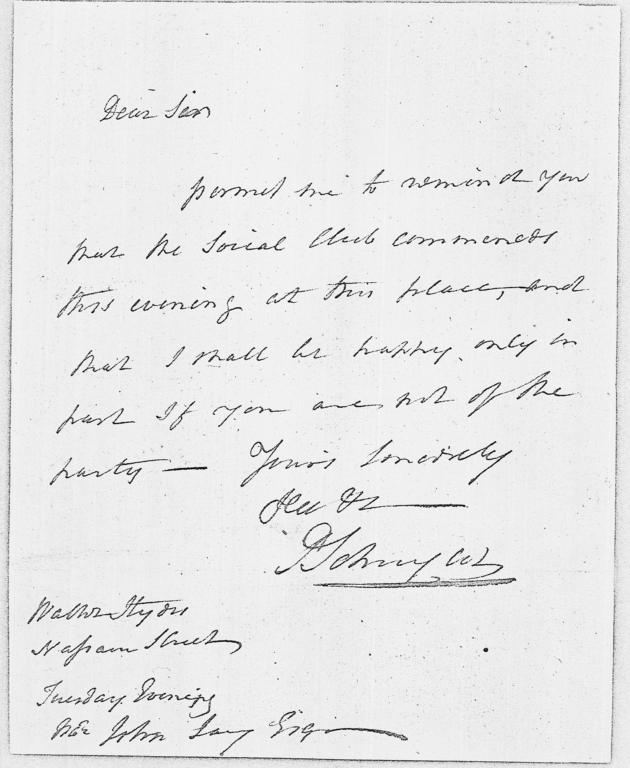 Dear Sir
permit me to remind you
that the Social Club commences
this evening at this place, and
that I shall be happy only in
part If you are not of the
party — Yours Sincerely
&c &c
P Schuyler
Walter
Nassau Street
Tuesday Evening
John Jay Esqr